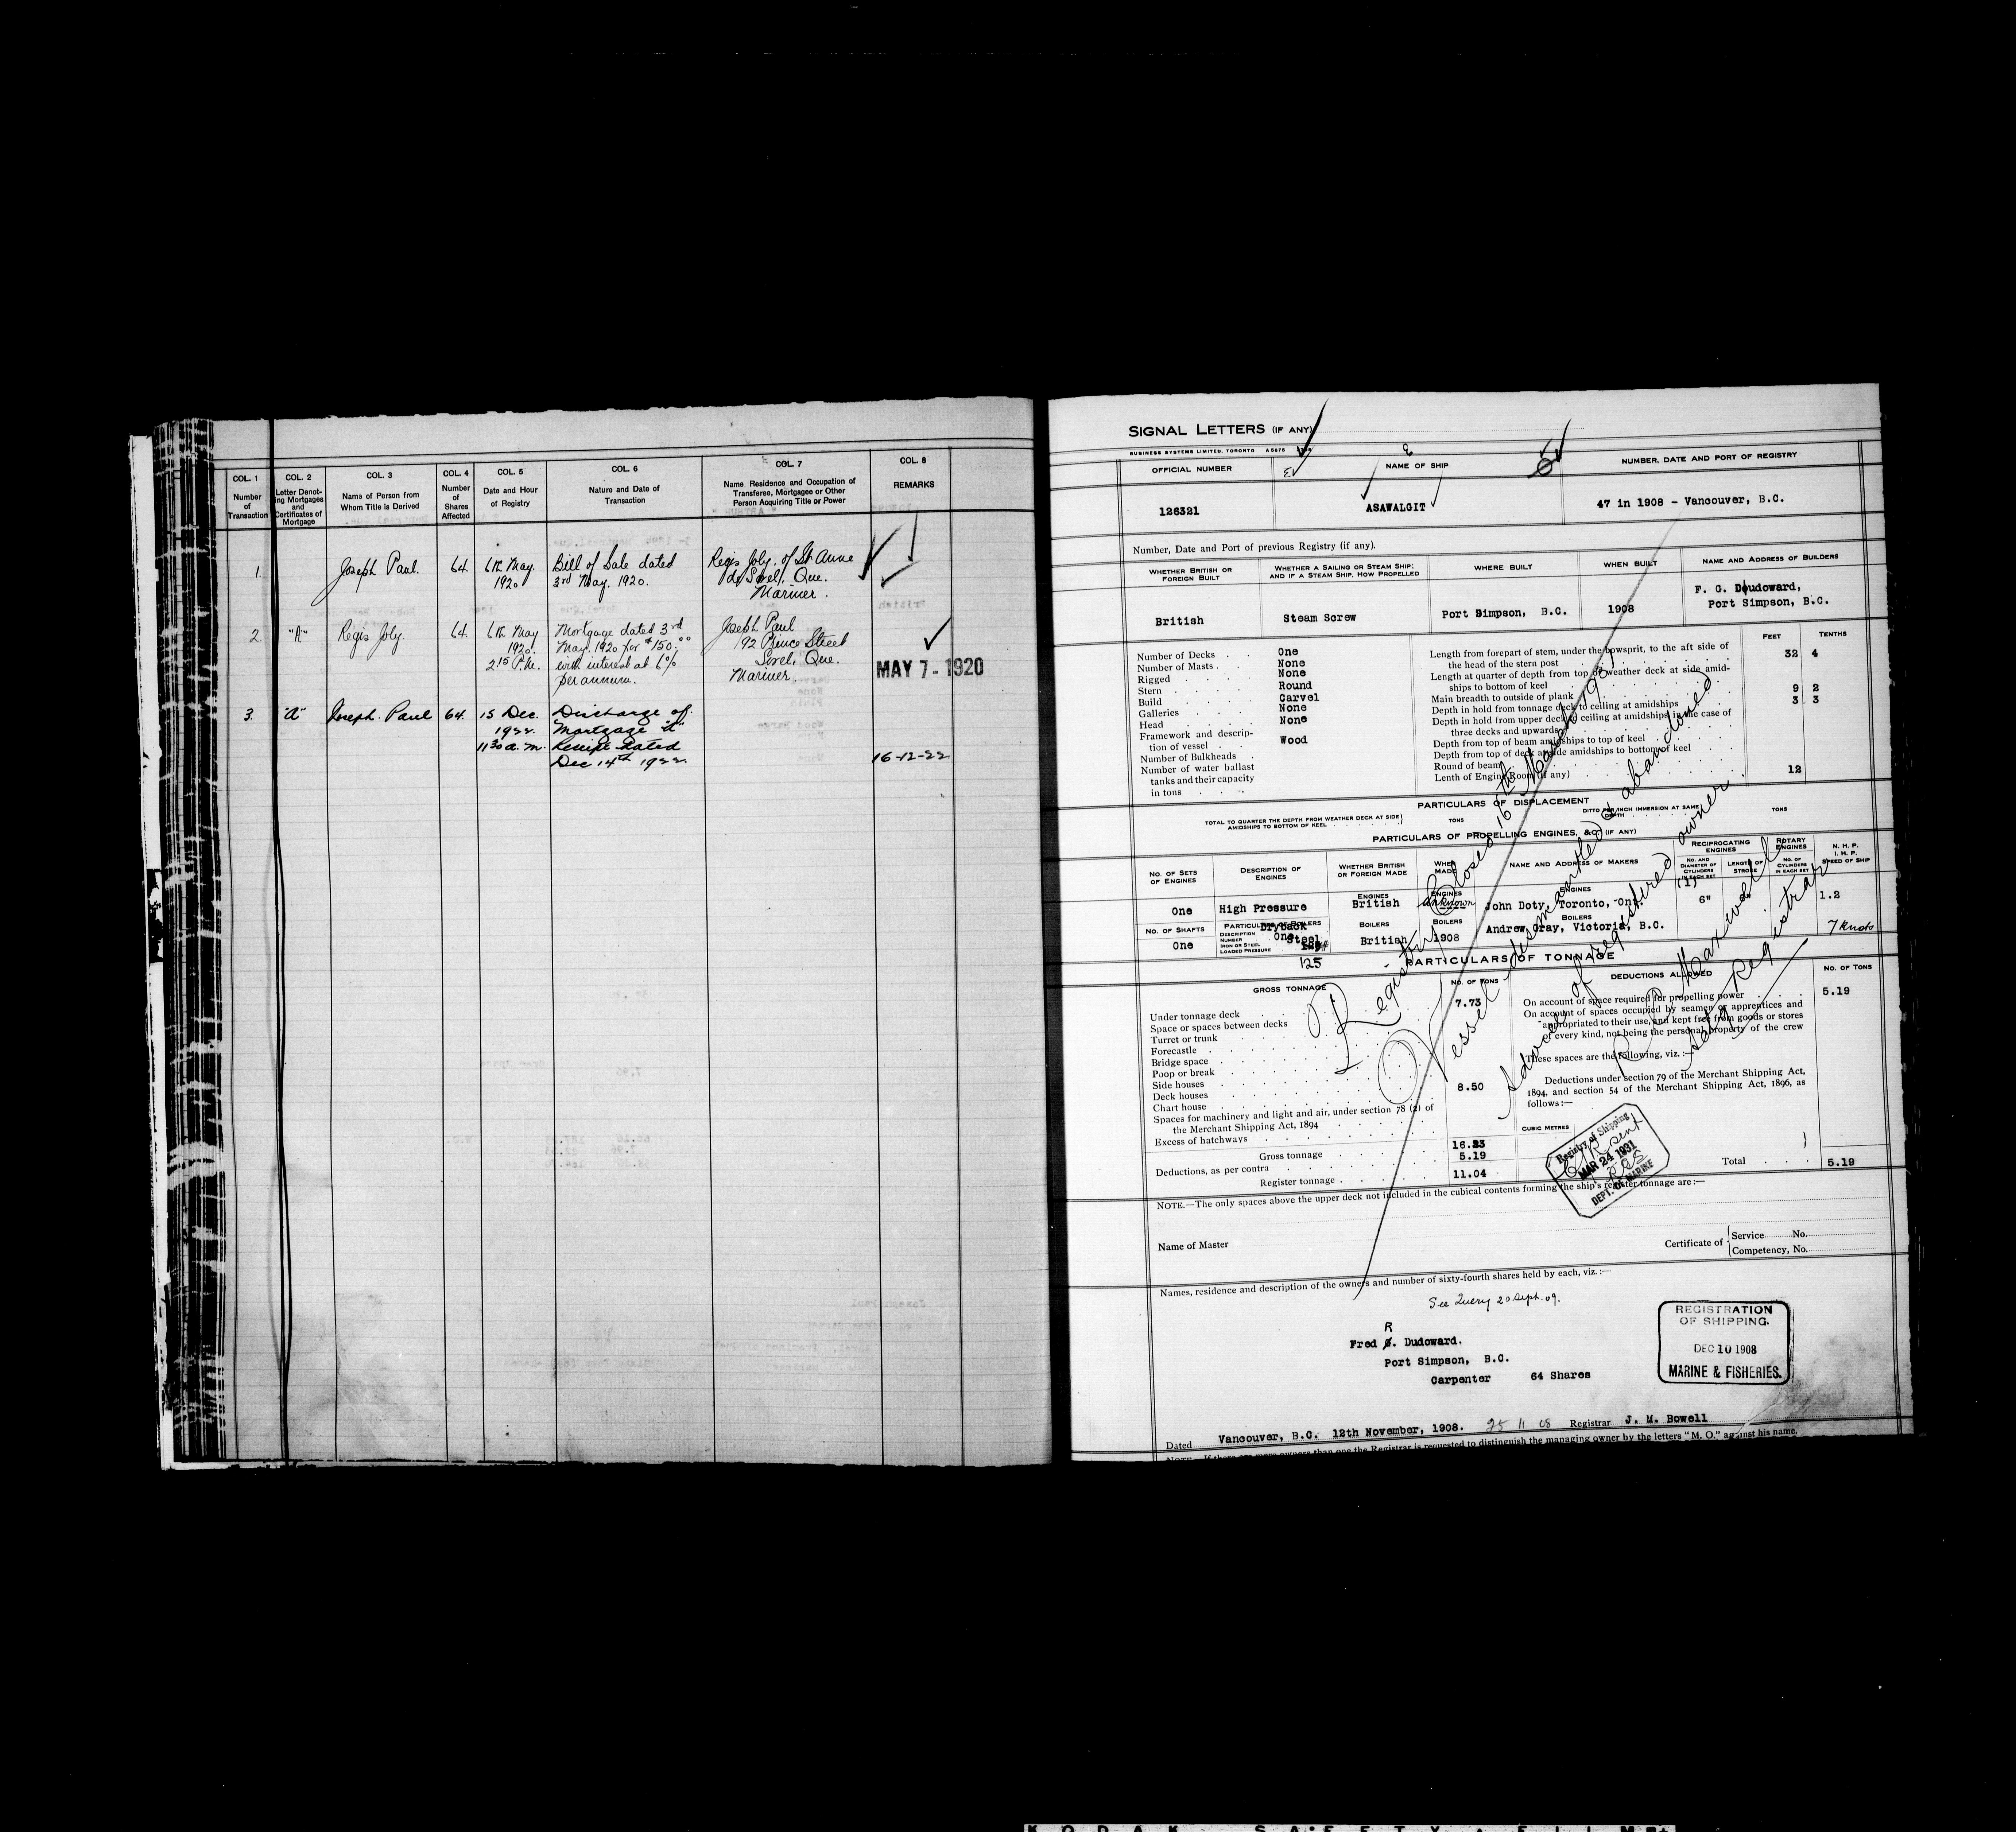 COL. 1
Number
of
Transaction
COL. 2
Letter Denot-
ing Mortgages
and
Certificates of
Mortgage
COL. 3
Name of Person from
Whom Title is Derived
COL. 4
Number
of
Shares
Affected
COL. 5
Date and Hour
of Registry
COL. 6
Nature and Date of
Transaction
COL. 7
Name, Residence and Occupation of
Transferee, Mortgagee or Other
Person Acquiring Title or Power
COL. 8
REMARKS
1. Joseph Paul. 64. 6th May. Bill of Sale dated Regis Joly. of St. Anne
1920 3rd May. 1920. de Sorel, Que.
Mariner.
2. "A" Regis Joly. 64. 6th May Mortgage dated 3rd Joseph Paul
1920. May. 1920 for $150.00 192 Prince Street
2.15 P.M. with interest at 6% Sorel, Que.
per annum. Mariner.
MAY 7 - 1920
3. "A" Joseph Paul 64. 15 Dec. Discharge of
1922 Mortgage "A"
11.30 a.m. Receipt dated
Dec 14th 1922 16-12-22
SIGNAL LETTERS (IF ANY)
BUSINESS SYSTEMS LIMITED, TORONTO
OFFICIAL NUMBER
126321
NAME OF SHIP
ASAWALGIT
NUMBER, DATE AND PORT OF REGISTRY
47 in 1908 - Vancouver, B.C.
Number, Date and Port of previous Registry (if any).
WHETHER BRITISH OR
FOREIGN BUILT
British
WHETHER A SAILING OR STEAM SHIP;
AND IF A STEAM SHIP, HOW PROPELLED
Steam Screw
WHERE BUILT
Port Simpson, B.C.
WHEN BUILT
1908
NAME AND ADDRESS OF BUILDERS
F. G. Doudoward,
Port Simpson, B.C.
Number of Decks One
Number of Masts None
Rigged None
Stern Round
Build Carvel
Galleries None
Head None
Framework and descrip-
tion of vessel Wood
Number of Bulkheads
Number of water ballast
tanks and their capacity
in tons
FEET TENTHS
Length from forepart of stem, under the bowsprit, to the aft side of
the head of the stern post 32 4
Length at quarter of depth from top of weather deck at side amid-
ships to bottom of keel
Main breadth to outside of plank 9 2
Depth in hold from tonnage deck to ceiling at amidships 3 3
Depth in hold from upper deck to ceiling at amidships in the case of
three decks and upwards
Depth from top of beam amidships to top of keel
Depth from top of deck at side amidships to bottom of keel
Round of beam
Lenth of Engine Room (if any) 12
PARTICULARS OF DISPLACEMENT
TOTAL TO QUARTER THE DEPTH FROM WEATHER DECK AT SIDE
AMIDSHIPS TO BOTTOM OF KEEL TONS
DITTO PER INCH IMMERSION AT SAME
DEPTH TONS
PARTICULARS OF PROPELLING ENGINES, &C. (IF ANY)
NO. OF SETS
OF ENGINES
DESCRIPTION OF
ENGINES
WHETHER BRITISH
OR FOREIGN MADE
WHEN
MADE
NAME AND ADDRESS OF MAKERS
RECIPROCATING
ENGINES
NO. AND
DIAMETER OF
CYLINDERS
IN EACH SET
LENGTH OF
STROKE
ROTARY
ENGINES
NO. OF
CYLINDERS
IN EACH SET
N. H. P.
I. H. P.
SPEED OF SHIP
ENGINES ENGINES ENGINES
One High Pressure British Unknown John Doty, Toronto, Ont. (1) 6" 6" 1.2
NO. OF SHAFTS
One
PARTICULARS OF BOILERS
DESCRIPTION Dryback
NUMBER One
IRON OR STEEL Steel
LOADED PRESSURE
125
BOILERS BOILERS BOILERS
British 1908 Andrew Gray, Victoria, B.C.
7 Knots
PARTICULARS OF TONNAGE
GROSS TONNAGE NO. OF TONS
Under tonnage deck 7.73
Space or spaces between decks
Turret or trunk
Forecastle
Bridge space
Poop or break
Side houses
Deck houses 8.50
Chart house
Spaces for machinery and light and air, under section 78 (2) of
the Merchant Shipping Act, 1894
Excess of hatchways
Gross tonnage 16.23
Deductions, as per contra 5.19
Register tonnage 11.04
DEDUCTIONS ALLOWED NO. OF TONS
On account of space required for propelling power 5.19
On account of spaces occupied by seamen or apprentices and
appropriated to their use, and kept free from goods or stores
of every kind, not being the personal property of the crew
These spaces are the following, viz.:—
Deductions under section 79 of the Merchant Shipping Act,
1894, and section 54 of the Merchant Shipping Act, 1896, as
follows:—
CUBIC METRES
Total 5.19
Registry Closed 16th March 1931
Vessel dismantled & abandoned
Advice of registered owner.
R. Maxwell
Actg Registrar
Registry of Shipping
MAR 24 1931
DEPT. OF MARINE
NOTE.—The only spaces above the upper deck not included in the cubical contents forming the ship's register tonnage are:—
Name of Master
Certificate of
Service No.
Competency, No.
Names, residence and description of the owners and number of sixty-fourth shares held by each, viz.:—
See Query 20 Sept. 09.
R
Fred G. Dudoward.
Port Simpson, B.C.
Carpenter 64 Shares
REGISTRATION
OF SHIPPING.
DEC 10 1908
MARINE & FISHERIES.
Dated Vancouver, B.C. 12th November, 1908. 25 11 08 Registrar J. M. Bowell
NOTE.—If there are more owners than one the Registrar is requested to distinguish the managing owner by the letters "M. O." against his name.
KODAK SAFETY FILM